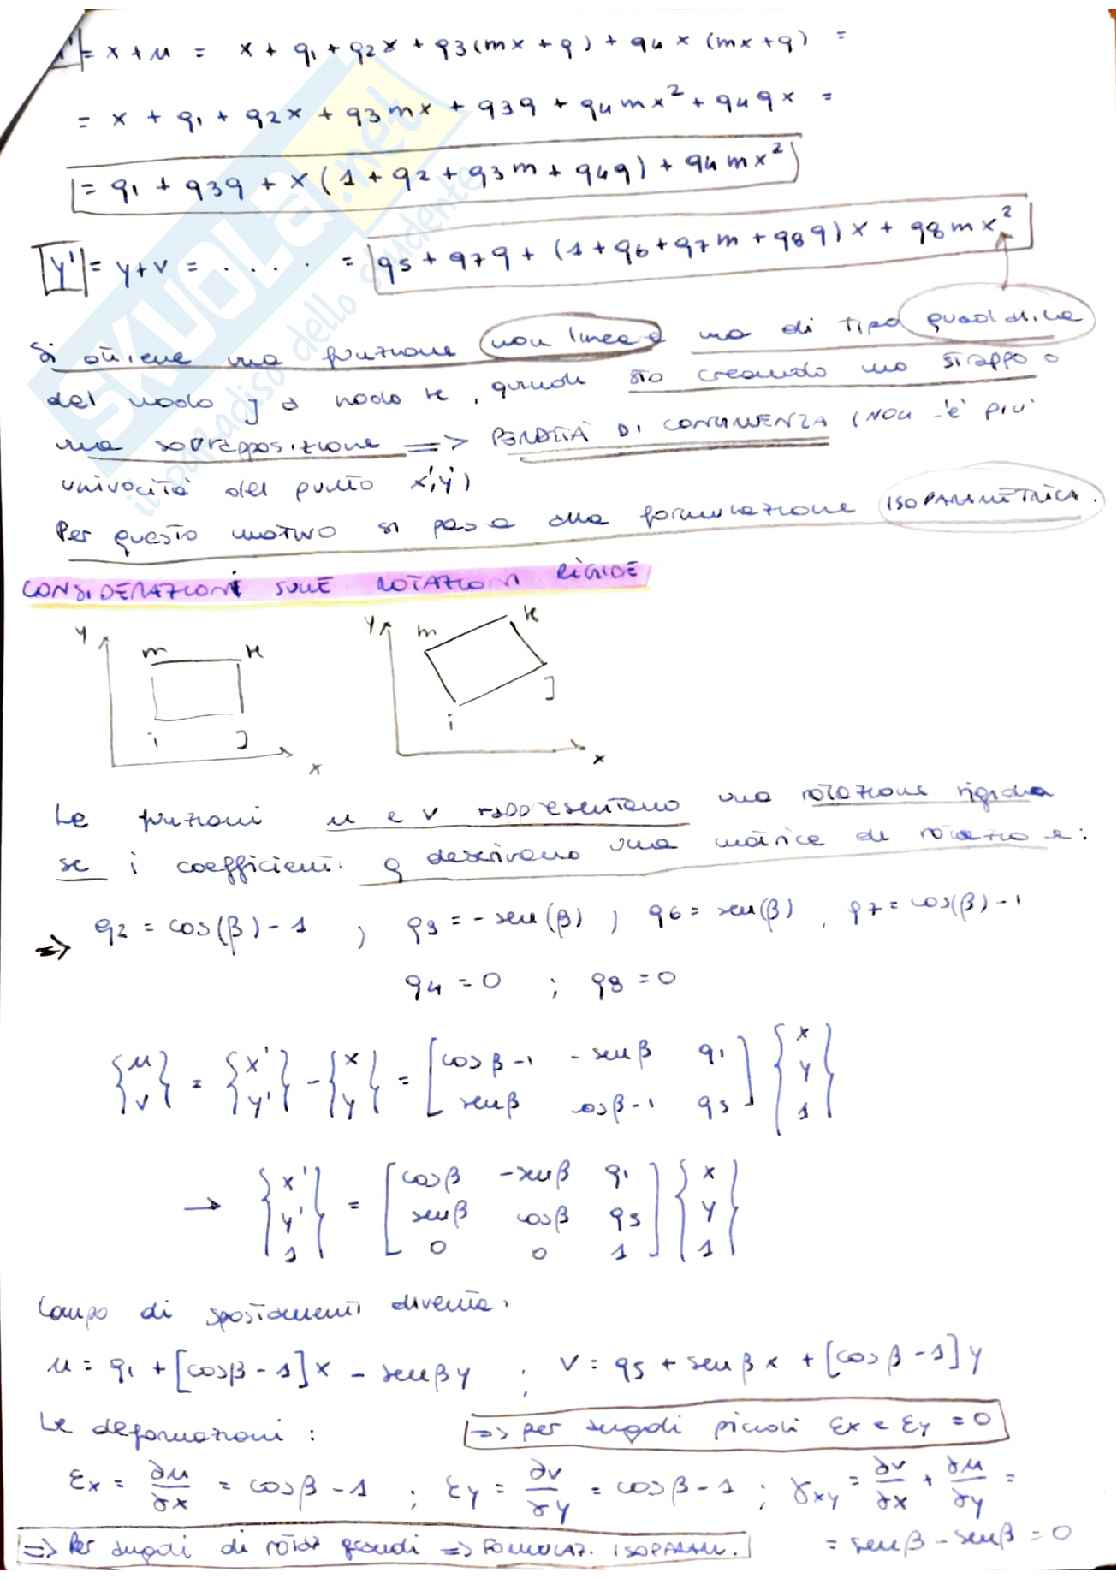 x' = x + u = x + q1 + q2x + q3(mx + q) + q4 x (mx + q) =
= x + q1 + q2x + q3mx + q3q + q4mx² + q4qx =
= q1 + q3q + x(1 + q2 + q3m + q4q) + q4mx²
y' = y + v = ..... = q5 + q7q + (1 + q6 + q7m + q8q)x + q8mx²
Si ottiene una funzione non lineare ma di tipo quadratica
dal nodo J a nodo K, quindi sto creando uno strappo o
una sovrapposizione => PERDITA DI CONGRUENZA (NON c'è più
univocità del punto x', y')
Per questo motivo si passa alla formulazione ISOPARAMETRICA.
CONSIDERAZIONI SULLE ROTAZIONI RIGIDE
y m K y m K
i J x i J x
Le funzioni u e v rappresentano una rotazione rigida
se i coefficienti q descrivono una matrice di rotazione:
=> q2 = cos(β) - 1 ; q3 = - sen(β) ; q6 = sen(β) , q7 = cos(β) - 1
q4 = 0 ; q8 = 0
{u v} = {x' y'} - {x y} = [cosβ-1 -senβ q1
senβ cosβ-1 q5] {x y 1}
→ {x' y' 1} = [cosβ -senβ q1
senβ cosβ q5
0 0 1] {x y 1}
Campo di spostamenti diventa:
u = q1 + [cosβ - 1]x - senβy ; v = q5 + senβx + [cosβ - 1]y
Le deformazioni : => per angoli piccoli εx e εy = 0
εx = ∂u/∂x = cosβ - 1 ; εy = ∂v/∂y = cosβ - 1 ; γxy = ∂v/∂x + ∂u/∂y =
=> Per angoli di rotaz grandi => FORMULAZ. ISOPARAM. = senβ - senβ = 0
SKUOLA.net
il paradiso dello studente